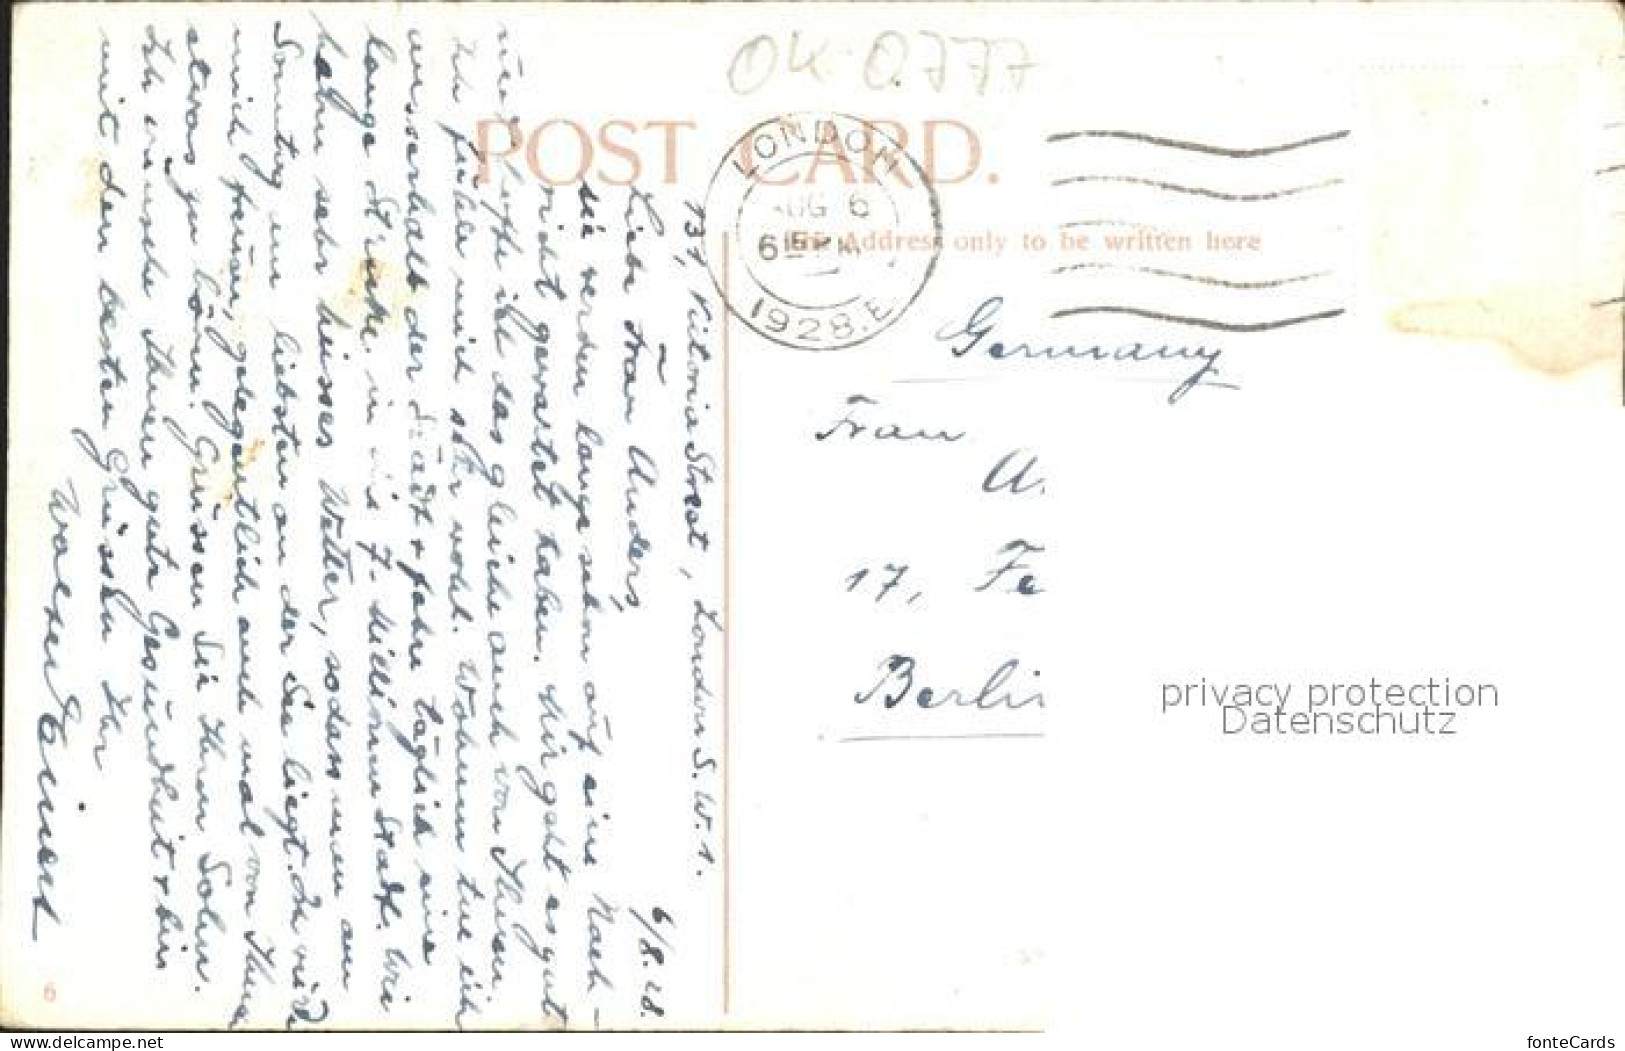 OK 0777
POST CARD.
LONDON
AUG 6
615 PM
1928.E
The Address only to be written here
137, Viktoria Street, London S.W.1.
6/8.28.
Liebe Frau Anders,
sie werden lange schon auf eine Nach-
richt gewartet haben. Mir geht es gut
und hoffe ich das gleiche auch von Ihnen.
Ich fühle mich sehr wohl. Wohnen tue ich
ausserhalb der Stadt & fahre täglich eine
lange Strecke in die 7-Millionenstadt. Wir
haben sehr heisses Wetter, sodass man am
Sonntag am liebsten an der See liegt. Es wird
mich freuen, gelegentlich auch mal von Ihnen
etwas zu hören. Grüssen Sie Ihren Sohn.
Ich wünsche Ihnen gute Gesundheit & bin
mit den besten Grüssen Ihr
Germany
Frau
A.
17, Fe
Berlin
privacy protection
Datenschutz
6
www.delcampe.net
fonteCards